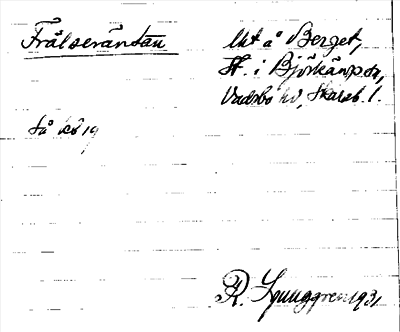 Frälseräntan
Mt å Berget,
St. i Björkängs
Vadsbo hd, Skarab. l.
få kö 19
R. Ljunggren 1931